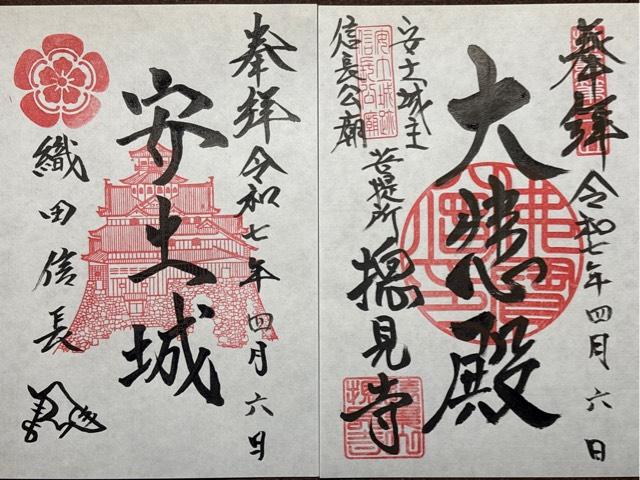 奉拝 令和七年四月六日
安土城
織田信長
奉拝 令和七年四月六日
大悲殿
安土城主
信長公廟
菩提所 摠見寺
安土城跡
信長公廟